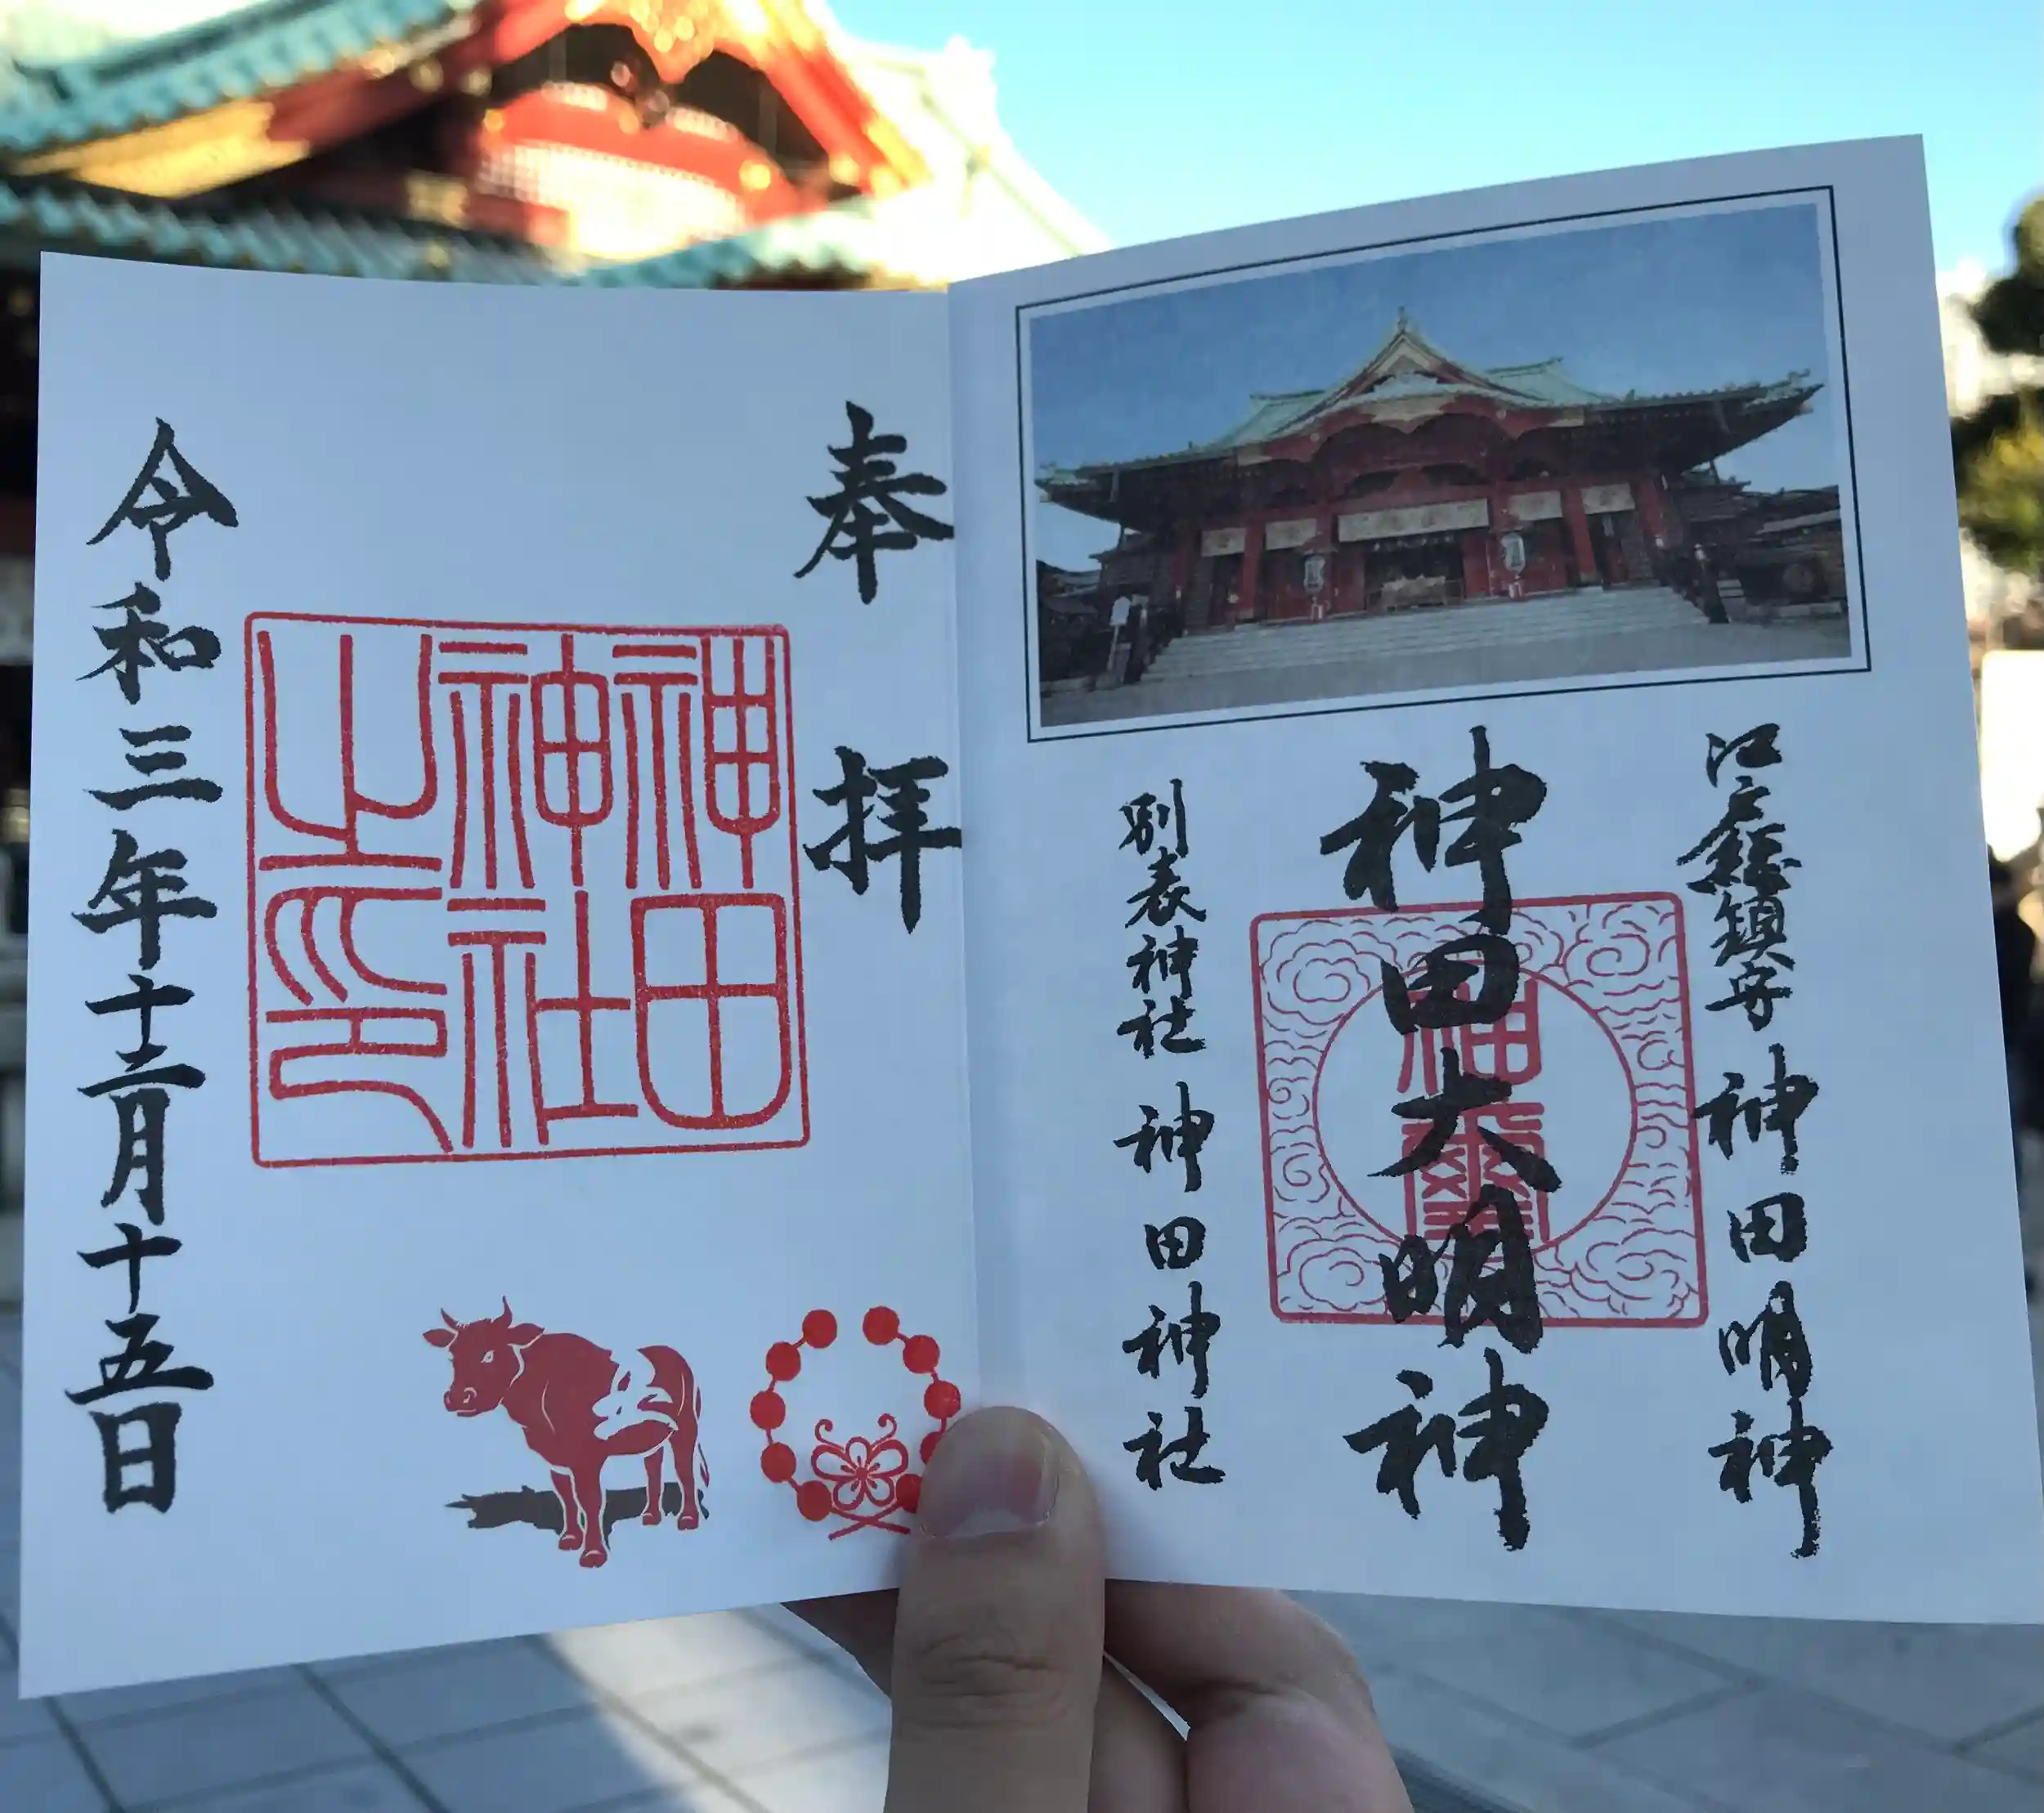 江戸総鎮守 神田明神
神田大明神
神璽
別表神社 神田神社
奉拝
神田
神社
之印
令和三年十二月十五日